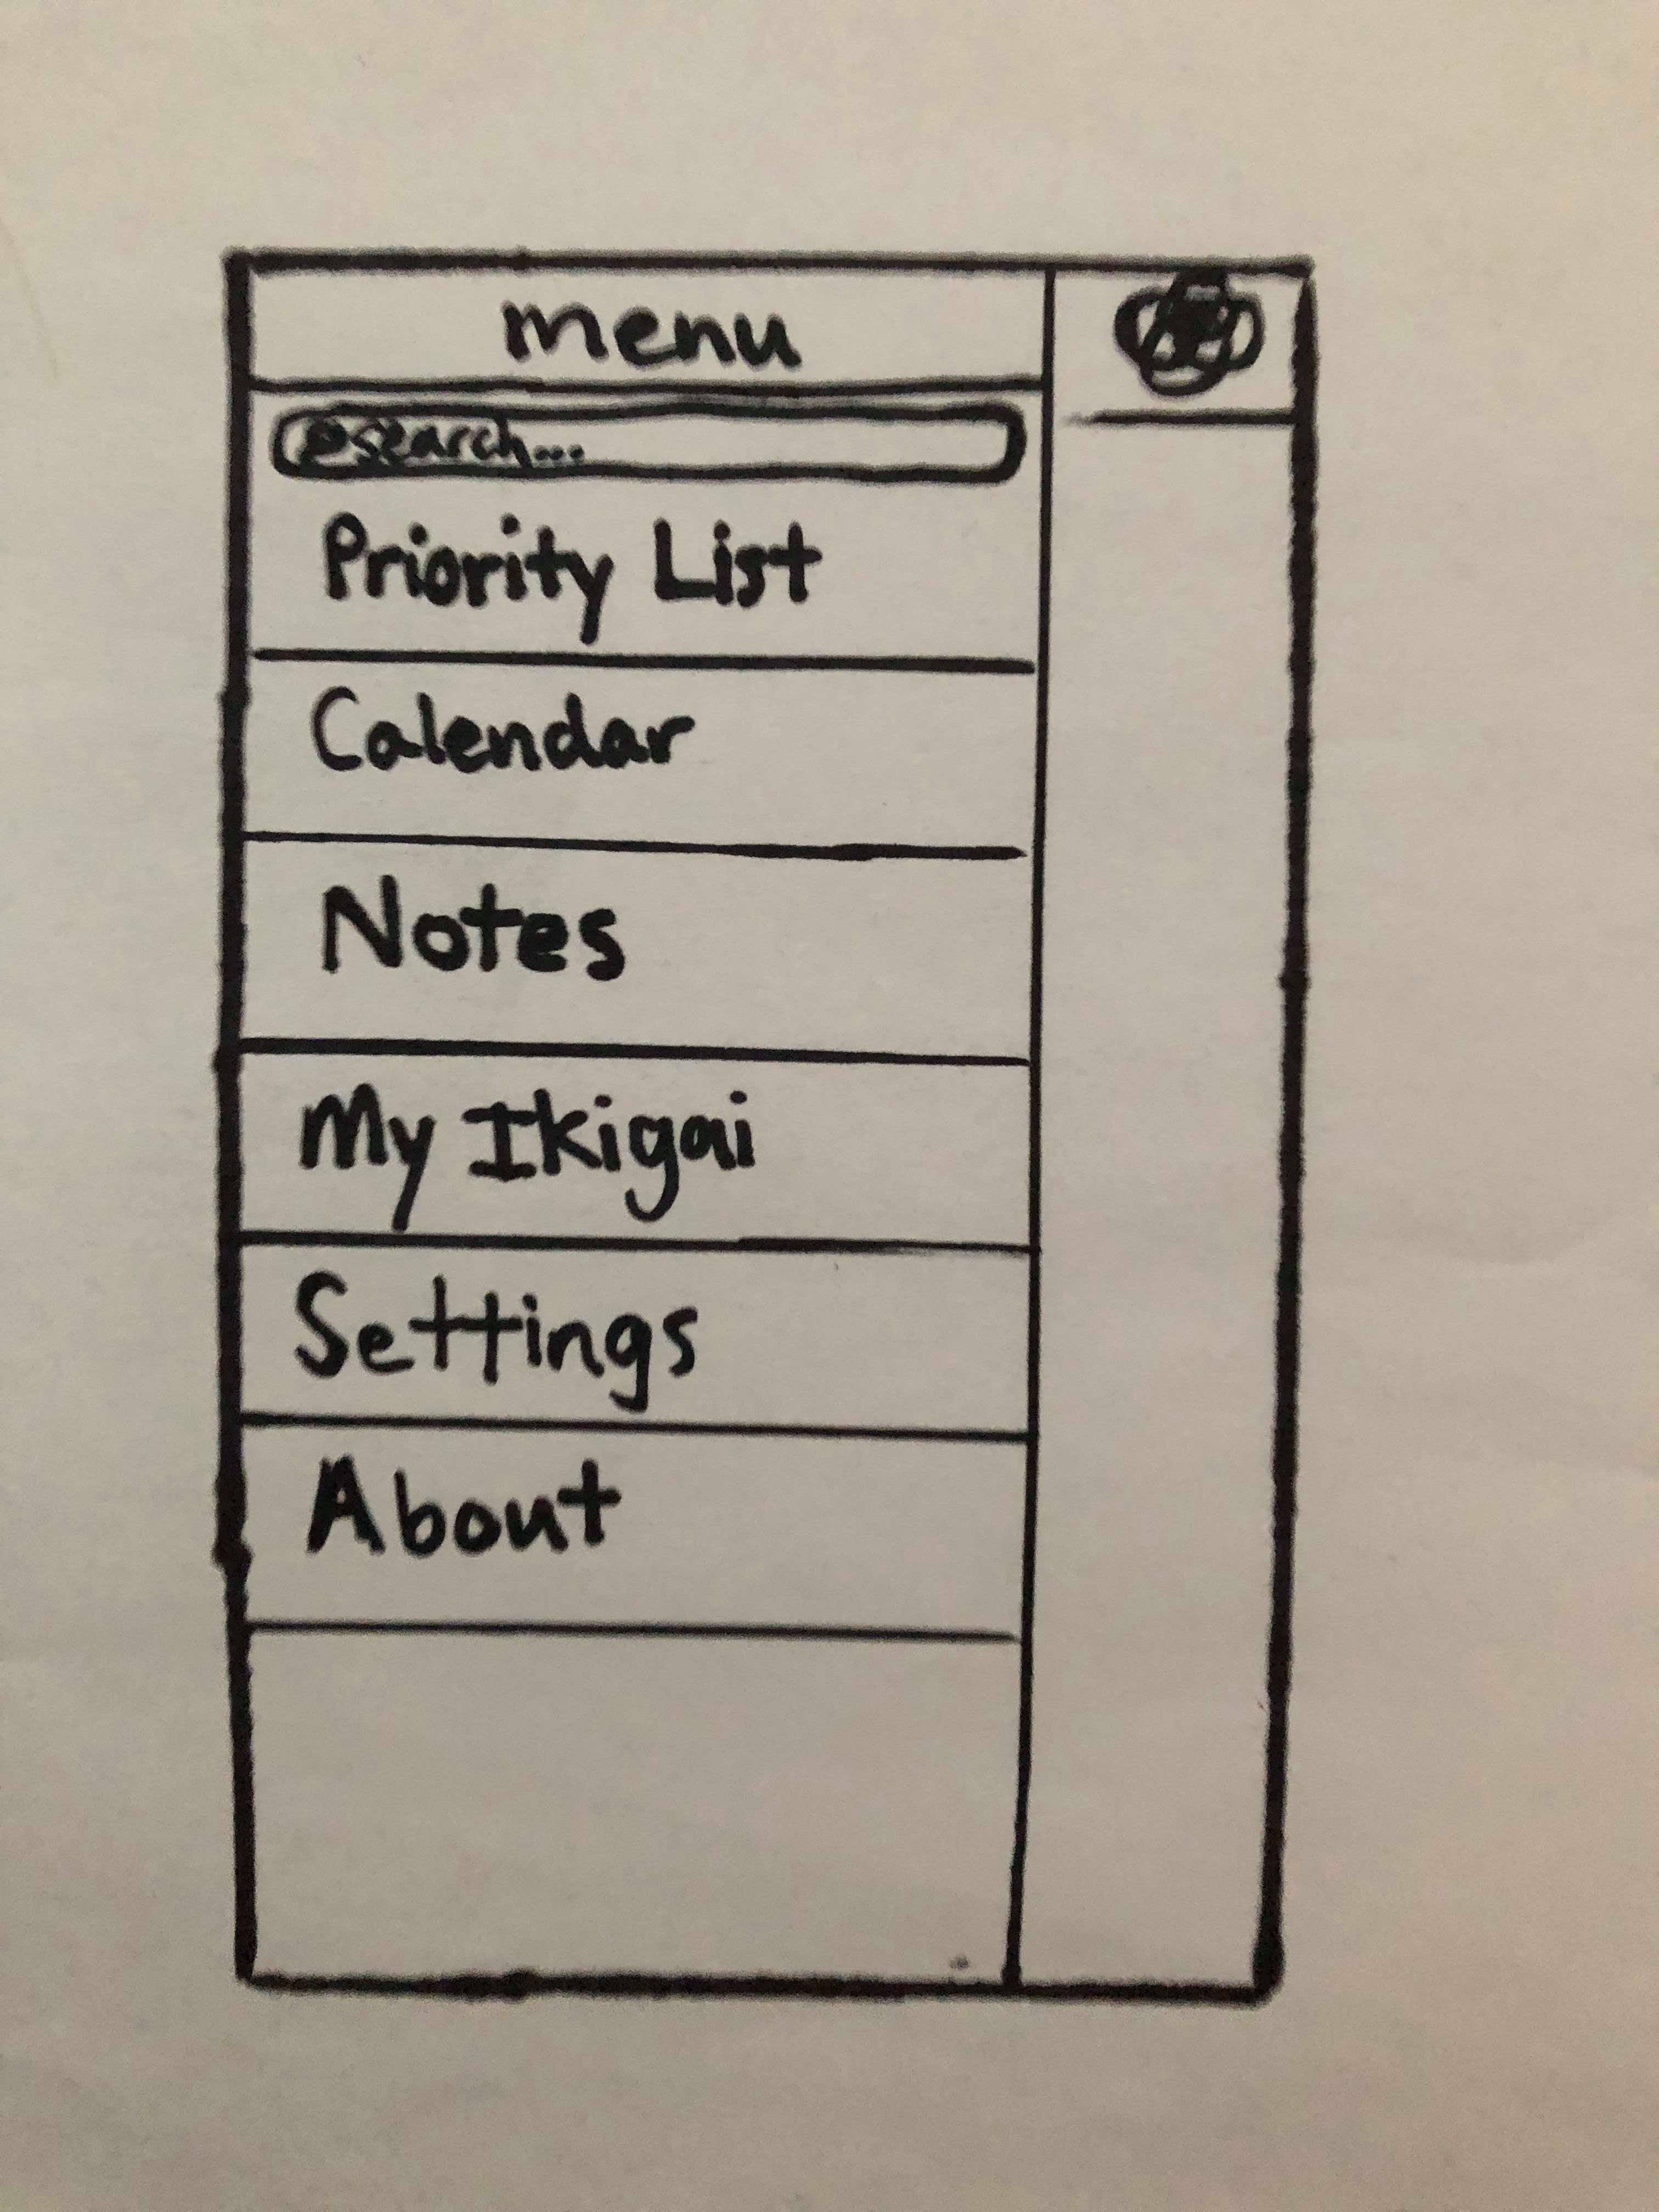 menu
search...
Priority List
Calendar
Notes
My Ikigai
Settings
About